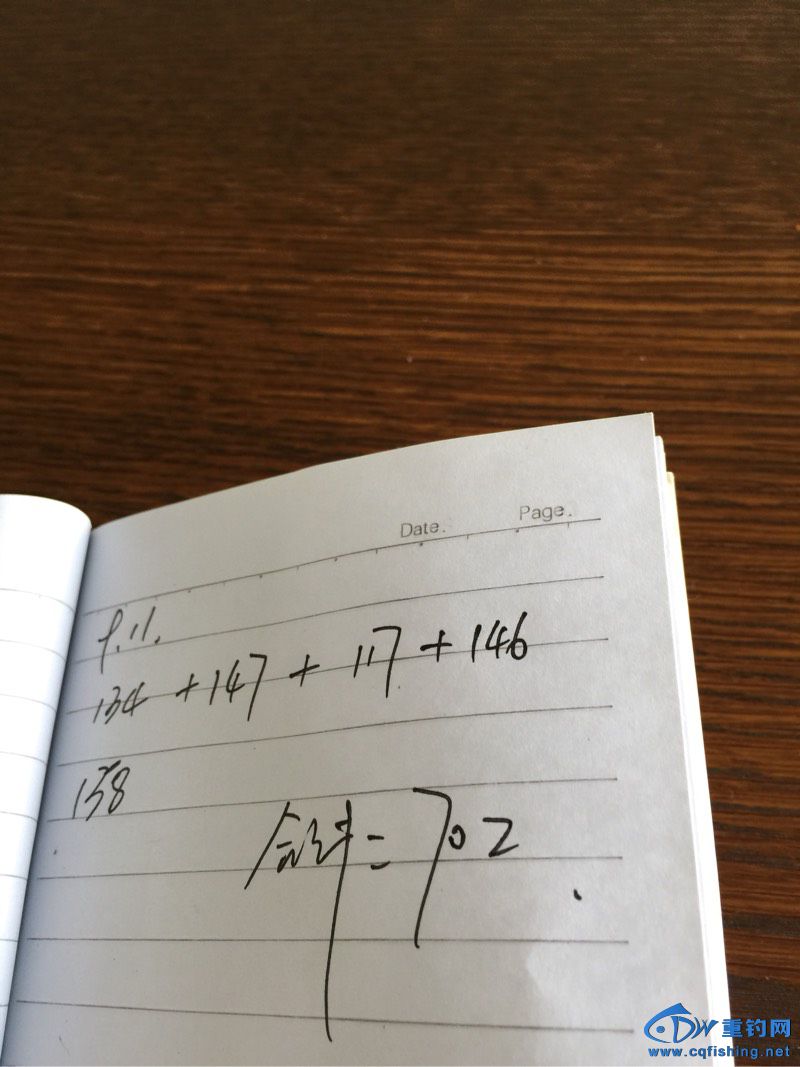 Date. Page.
9.11.
134 +147 + 117 + 146
158
合计=702
重钓网
www.cqfishing.net